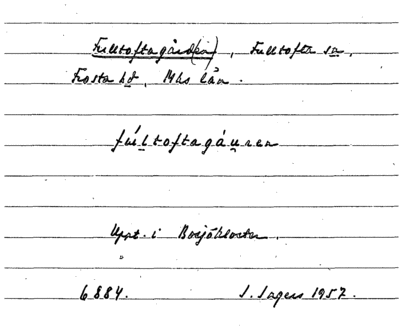 Fulltoftagård(en), Fulltofta sn,
Frosta hd, Mhs län.
fúltoftagáuren
Uppt. i Bosjökloster.
6884. I. Ingers 1957.